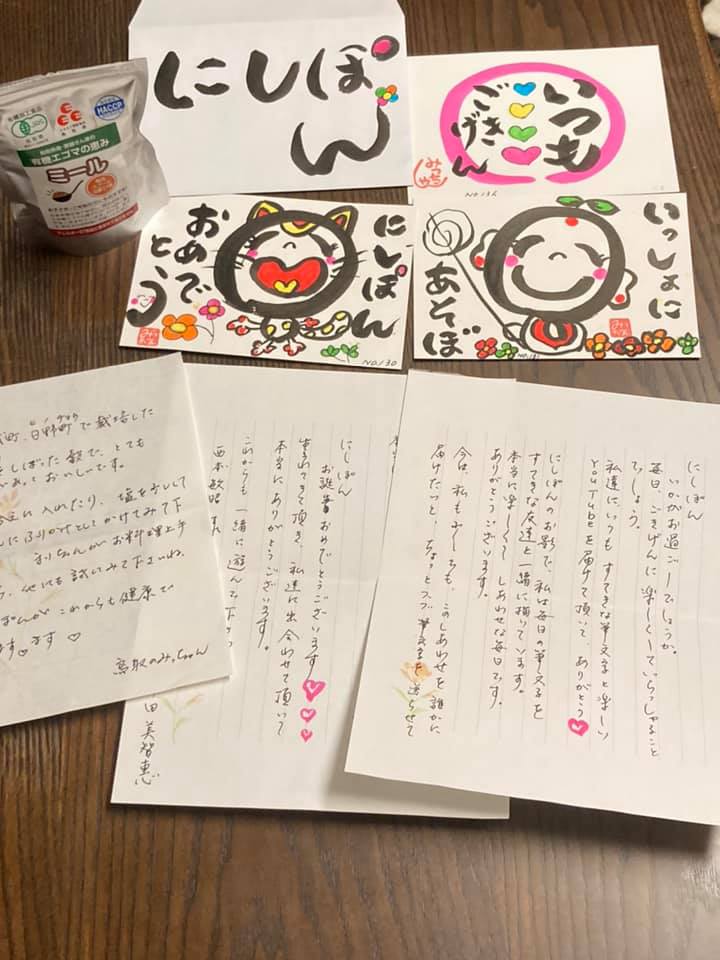 にしぽん
いつも
ごきげん
みっちゃん
NO.136
有機加工食品
JAS
HACCP
有機エゴマの恵み
ミール
にしぽん
おめでとう
NO.130
いっしょに
あそぼ
NO.131
にしぽん
いかがお過ごしでしょうか。
毎日、ごきげんに楽しくしていらっしゃること
でしょう。
私達に、いつもすてきな筆文字と楽しい
YouTubeを届けて頂いて、ありがとう
にしぽんのお影で、私は毎日の筆文字を
すてきな友達と一緒に描いています。
本当に楽しくて しあわせな毎日です。
ありがとうございます。
今は、私も少しでも、このしあわせを誰かに
届けたいと、ちょっとづつ筆文字を送らせて
にしぽん
お誕生日おめでとうございます
生まれてきて頂き、私達に出会わせて頂いて
本当にありがとうございます。
これからも一緒に遊んで下さい
西本敏昭さん
田美智恵
町、日野町で栽培した
をしぼった穀で、とても
があっておいしいです。
に入れたり、塩を少しして
にふりかけとしてかけてみて下
まりちゃんがお料理上手
、他にも試してみて下さいね。
ぽんがこれからも健康で
ます ます
鳥取のみっちゃん